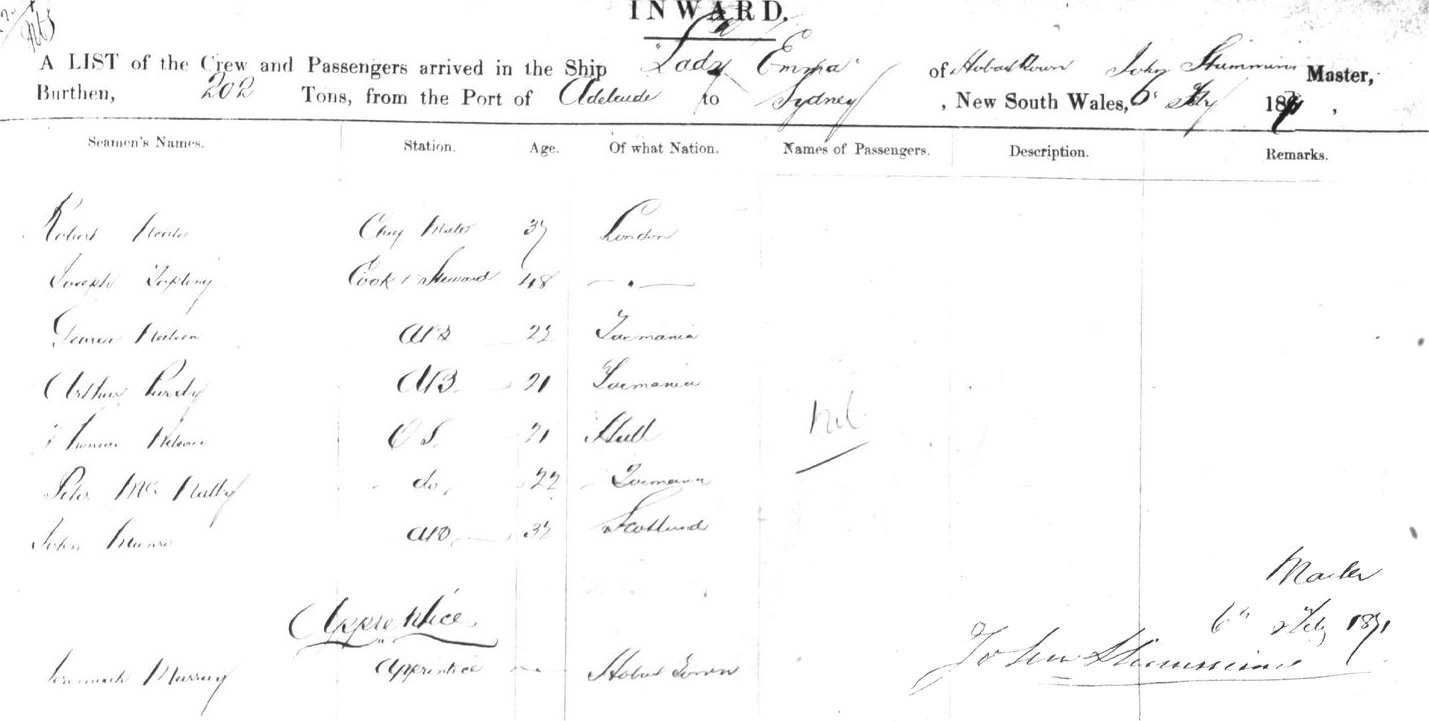 INWARD.
A LIST of the Crew and Passengers arrived in the Ship "Lady Emma" of Hobart Town John Master,
Burthen, 202 Tons, from the Port of Adelaide to Sydney, New South Wales, 6th Feby 1871,
Seamen's Names. Station. Age. Of what Nation. Names of Passengers. Description. Remarks.
Robert Chief Mate 37 London
Joseph Cook & Steward 48 — " —
AB 22 Tasmania
Arthur Purdy AB 21 Tasmania
Thomas OS 21 Hull
Nil
Peter McNally do 22 Tasmania
John Munro AB 32 Scotland
Master
Apprentice
6th Feby 1871
John
Jeremiah Murray Apprentice — Hobart Town